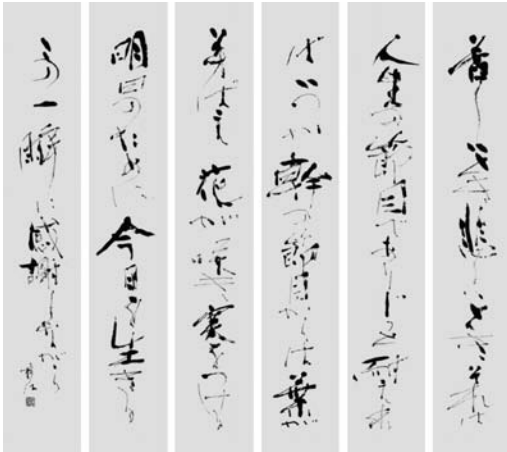 苦しいとき悲しいときそれは
人生の節目でありじっと耐えれ
ばいつか幹の節目からは葉が
芽ばえ花が咲き実をつける
明日のために今日を生きる
この一瞬に感謝しながら